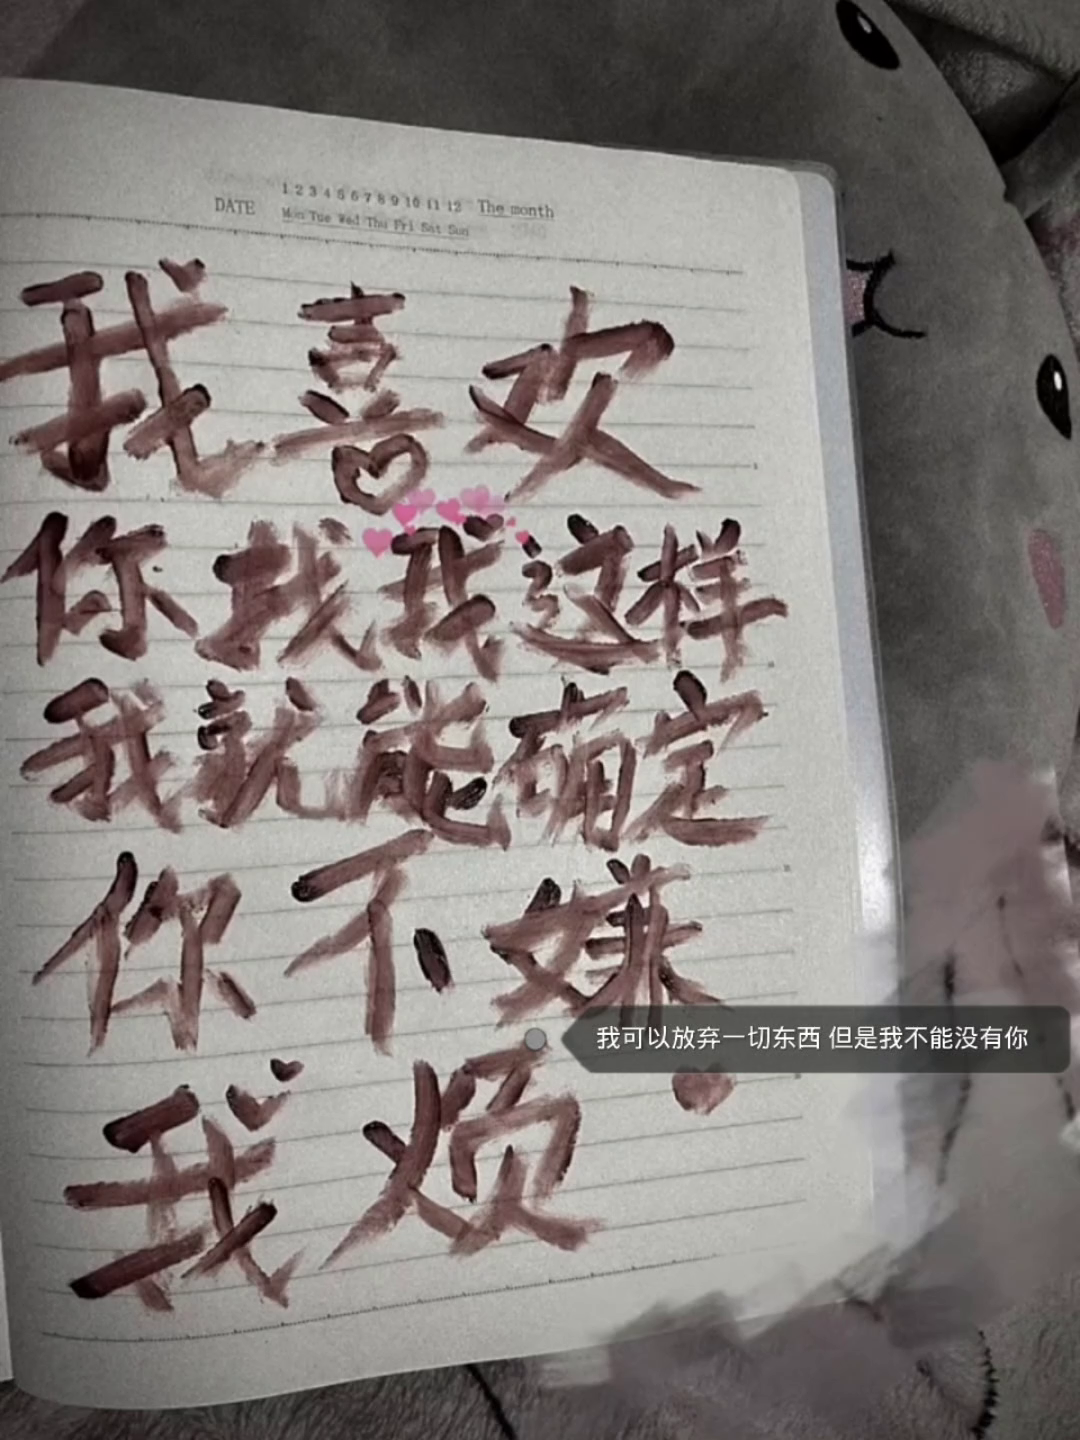 1 2 3 4 5 6 7 8 9 10 11 12 The month
DATE
Mon Tue Wed Thu Fri Sat Sun
我喜欢
你找我这样
我就能确定
你不嫌
我可以放弃一切东西 但是我不能没有你
我烦